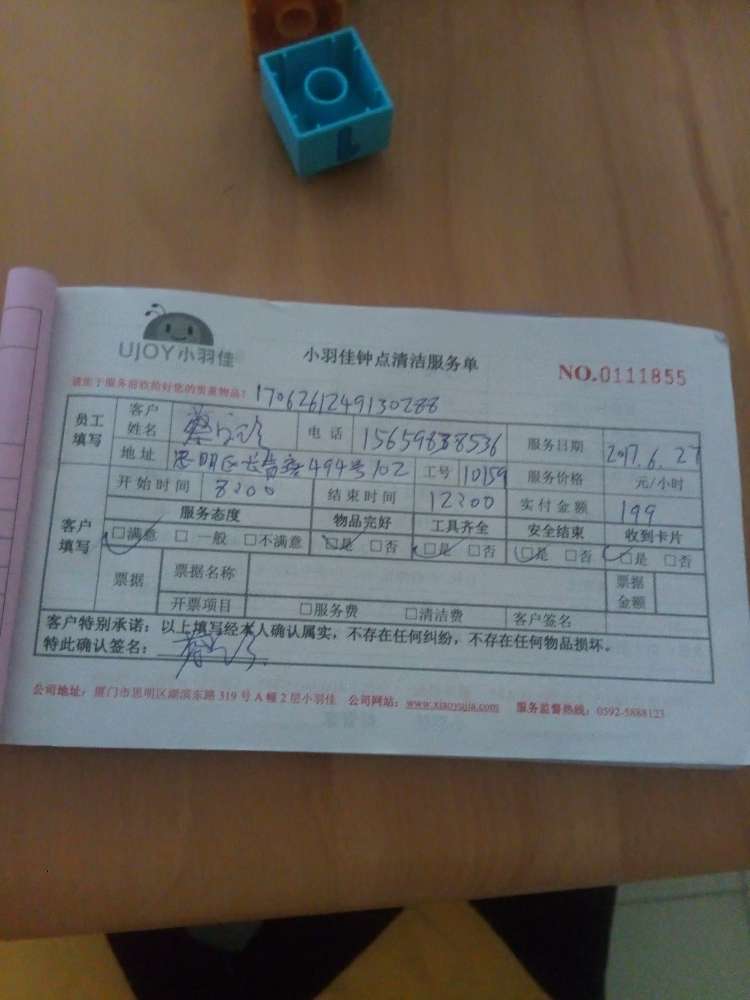 UJOY小羽佳
小羽佳钟点清洁服务单
NO.0111855
请您于服务前收拾好您的贵重物品!
1706261249130288
员工填写 客户姓名 蔡 电话 15659838536 服务日期 2017.6.27
地址 思明区长青路494号102 工号 10159 服务价格 元/小时
客户填写 开始时间 8:00 结束时间 12:00 实付金额 199
服务态度 物品完好 工具齐全 安全结束 收到卡片
□满意 □一般 □不满意 □是 □否 □是 □否 □是 □否 □是 □否
票据 票据名称 票据金额
开票项目 □服务费 □清洁费 客户签名
客户特别承诺:以上填写经本人确认属实,不存在任何纠纷,不存在任何物品损坏。
特此确认签名:
公司地址:厦门市思明区湖滨东路319号A幢2层小羽佳 公司网站:www.xiaoyujia.com 服务监督热线:0592-5888123